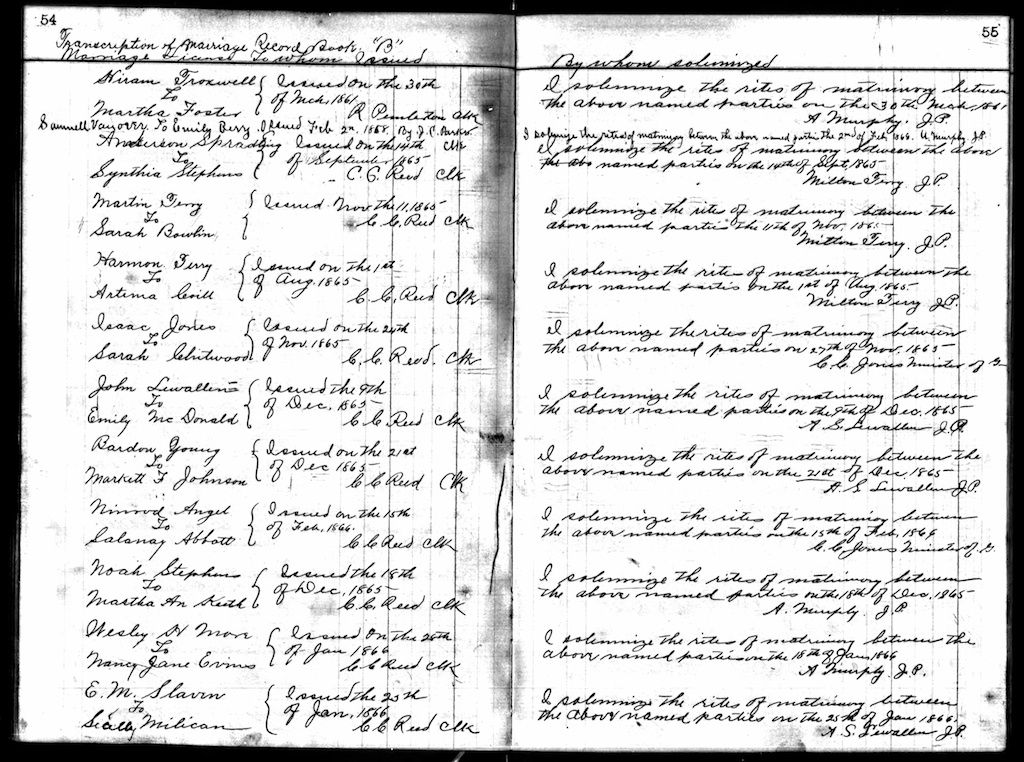 54
Transcription of Marriage Record Book "B"
Marriage License To whom Issued
Hiram Troxwell Issued on the 30th
To of Mch, 1861
Martha Foster R Pemleton Clk
Samuell Vanover To Emily Berry Issued Feb 2n, 1868. By J. C. Parker
Anderson Spradling Issued on the 14th Clk
To of September 1865
Synthia Stephens C. C. Reed Clk
Martin Terry Issued Nov the 11, 1865
To C. C. Reed Clk
Sarah Bowlin
Harmon Terry Issued on the 1st
To of Aug. 1865
Artema Coill C. C. Reed Clk
Isaac Jones Issued on the 24th
To of Nov. 1865
Sarah Chitwood C. C. Reed. Clk
John Lewallen Issued the 9th
To of Dec, 1865
Emily McDonald C C Reed Clk
Bardon Young Issued on the 21st
To of Dec 1865
Markett F Johnson C C Reed Clk
Nimrod Angel Issued on the 15th
To of Feb, 1866.
Salanay Abbott C C Reed Clk
Noah Stephens Issued the 18th
To of Dec, 1865
Martha An Keith C. C. Reed Clk
Wesley H More Issued on the 25th
To of Jan 1866
Nancy Jane Evins C C Reed Clk
E. M. Slaven Issued the 25th
To of Jan, 1866
Scally Milican C C Reed Clk
55
By whom solemnized
I solemnize the rites of matrimony between
the above named parties on the 30th Mch 1861
A Murphy. J.P.
I solemnize the rites of matrimony between the above named parties the 2nd of Feb 1868. A Murphy J.P.
I solemnize the rites of matrimony between the above
the abo named parties on the 14th of Sept, 1865
Milton Terry. J.P.
I solemnize the rites of matrimony between the
above named parties the 11th of Nov, 1865
Milton Terry. J.P.
I solemnize the rites of matrimony between the
above named parties on the 1st of Aug. 1865
Milton Terry J.P.
I solemnize the rites of matrimony between
the above named parties on 27th of Nov. 1865
C. C. Jones Minister of G
I solemnize the rites of matrimony between
the above named parties on the 9th of Dec. 1865
A. S. Lewallen J.P.
I solemnize the rites of matrimony between the
above named parties on the 21st of Dec. 1865
A. S. Lewallen J.P.
I solemnize the rites of matrimony between
the above named parties on the 15th of Feb, 1866
C. C. Jones Minister of G.
I solemnize the rites of matrimony between
the above named parties on the 18th of Dec, 1865
A. Murphy J.P
I solemnize the rites of matrimony between the
above named parties on the 18th of Jan, 1866
A Murphy. J.P.
I solemnize the rites of matrimony between
the above named parties on the 25th of Jan 1866.
A. S. Lewallen J.P.